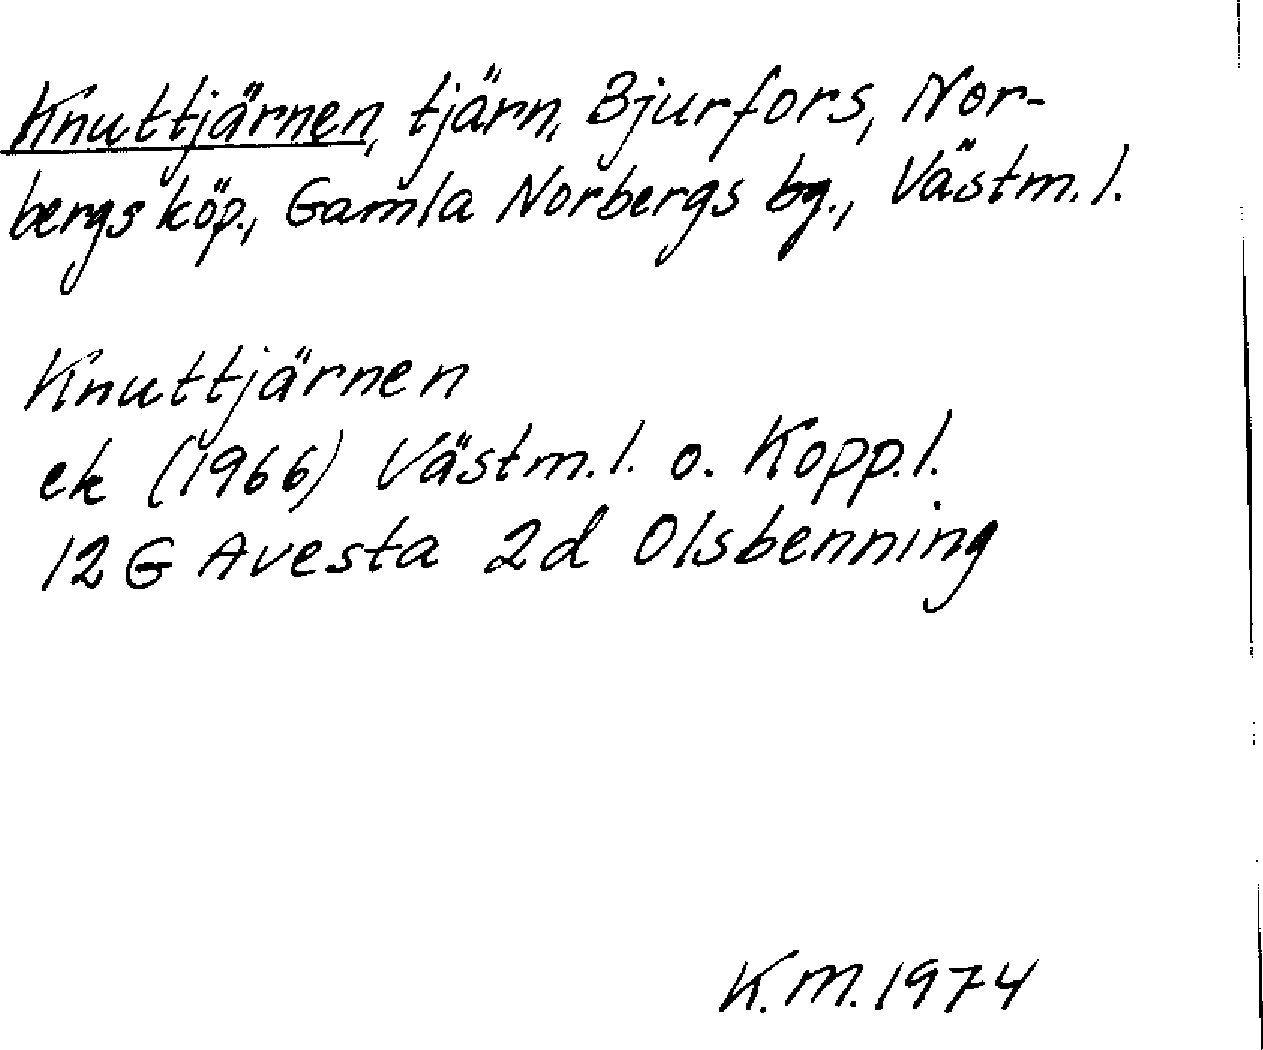 Knuttjärnen, tjärn, Bjurfors, Nor-
bergs köp., Gamla Norbergs bg., Västm.l.
Knuttjärnen
ek (1966) Västm.l. o. Kopp.l.
12G Avesta 2d Olsbenning
K.M. 1974